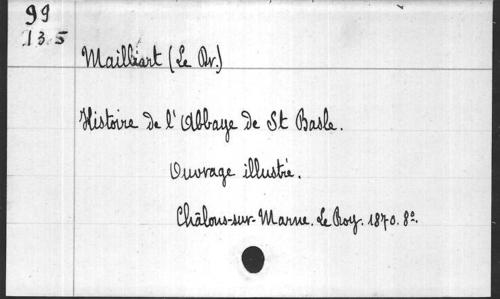 99
13.5
Mailliart (Le Dr.)
Histoire de l'Abbaye de St Basle.
Ouvrage illustré.
Châlons-sur-Marne. Le Roy. 1870. 8º.